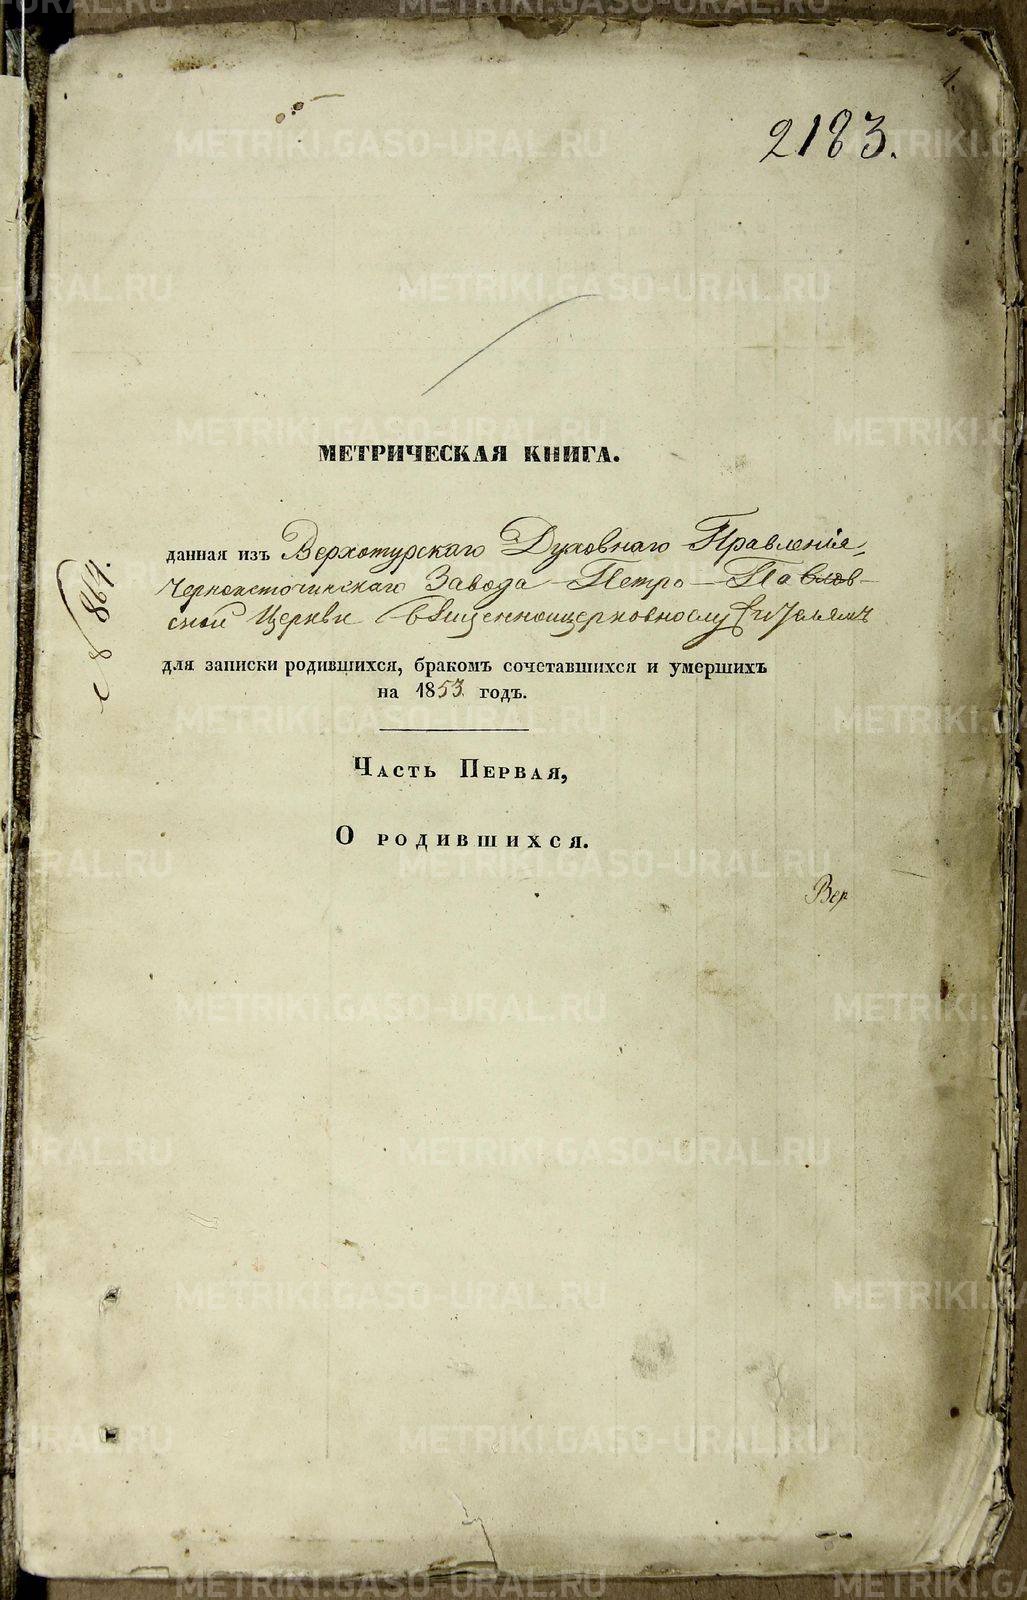 1.
2183.
МЕТРИЧЕСКАЯ КНИГА.
данная изъ Верхотурскаго Духовнаго Правленія,
Черноисточинскаго Завода Петро-Павлов-
ской Церкви Священноцерковнослужителямъ
№ 864.
для записки родившихся, бракомъ сочетавшихся и умершихъ
на 1853 годъ.
Часть Первая,
О родившихся.
Вер
METRIKI.GASO-URAL.RU